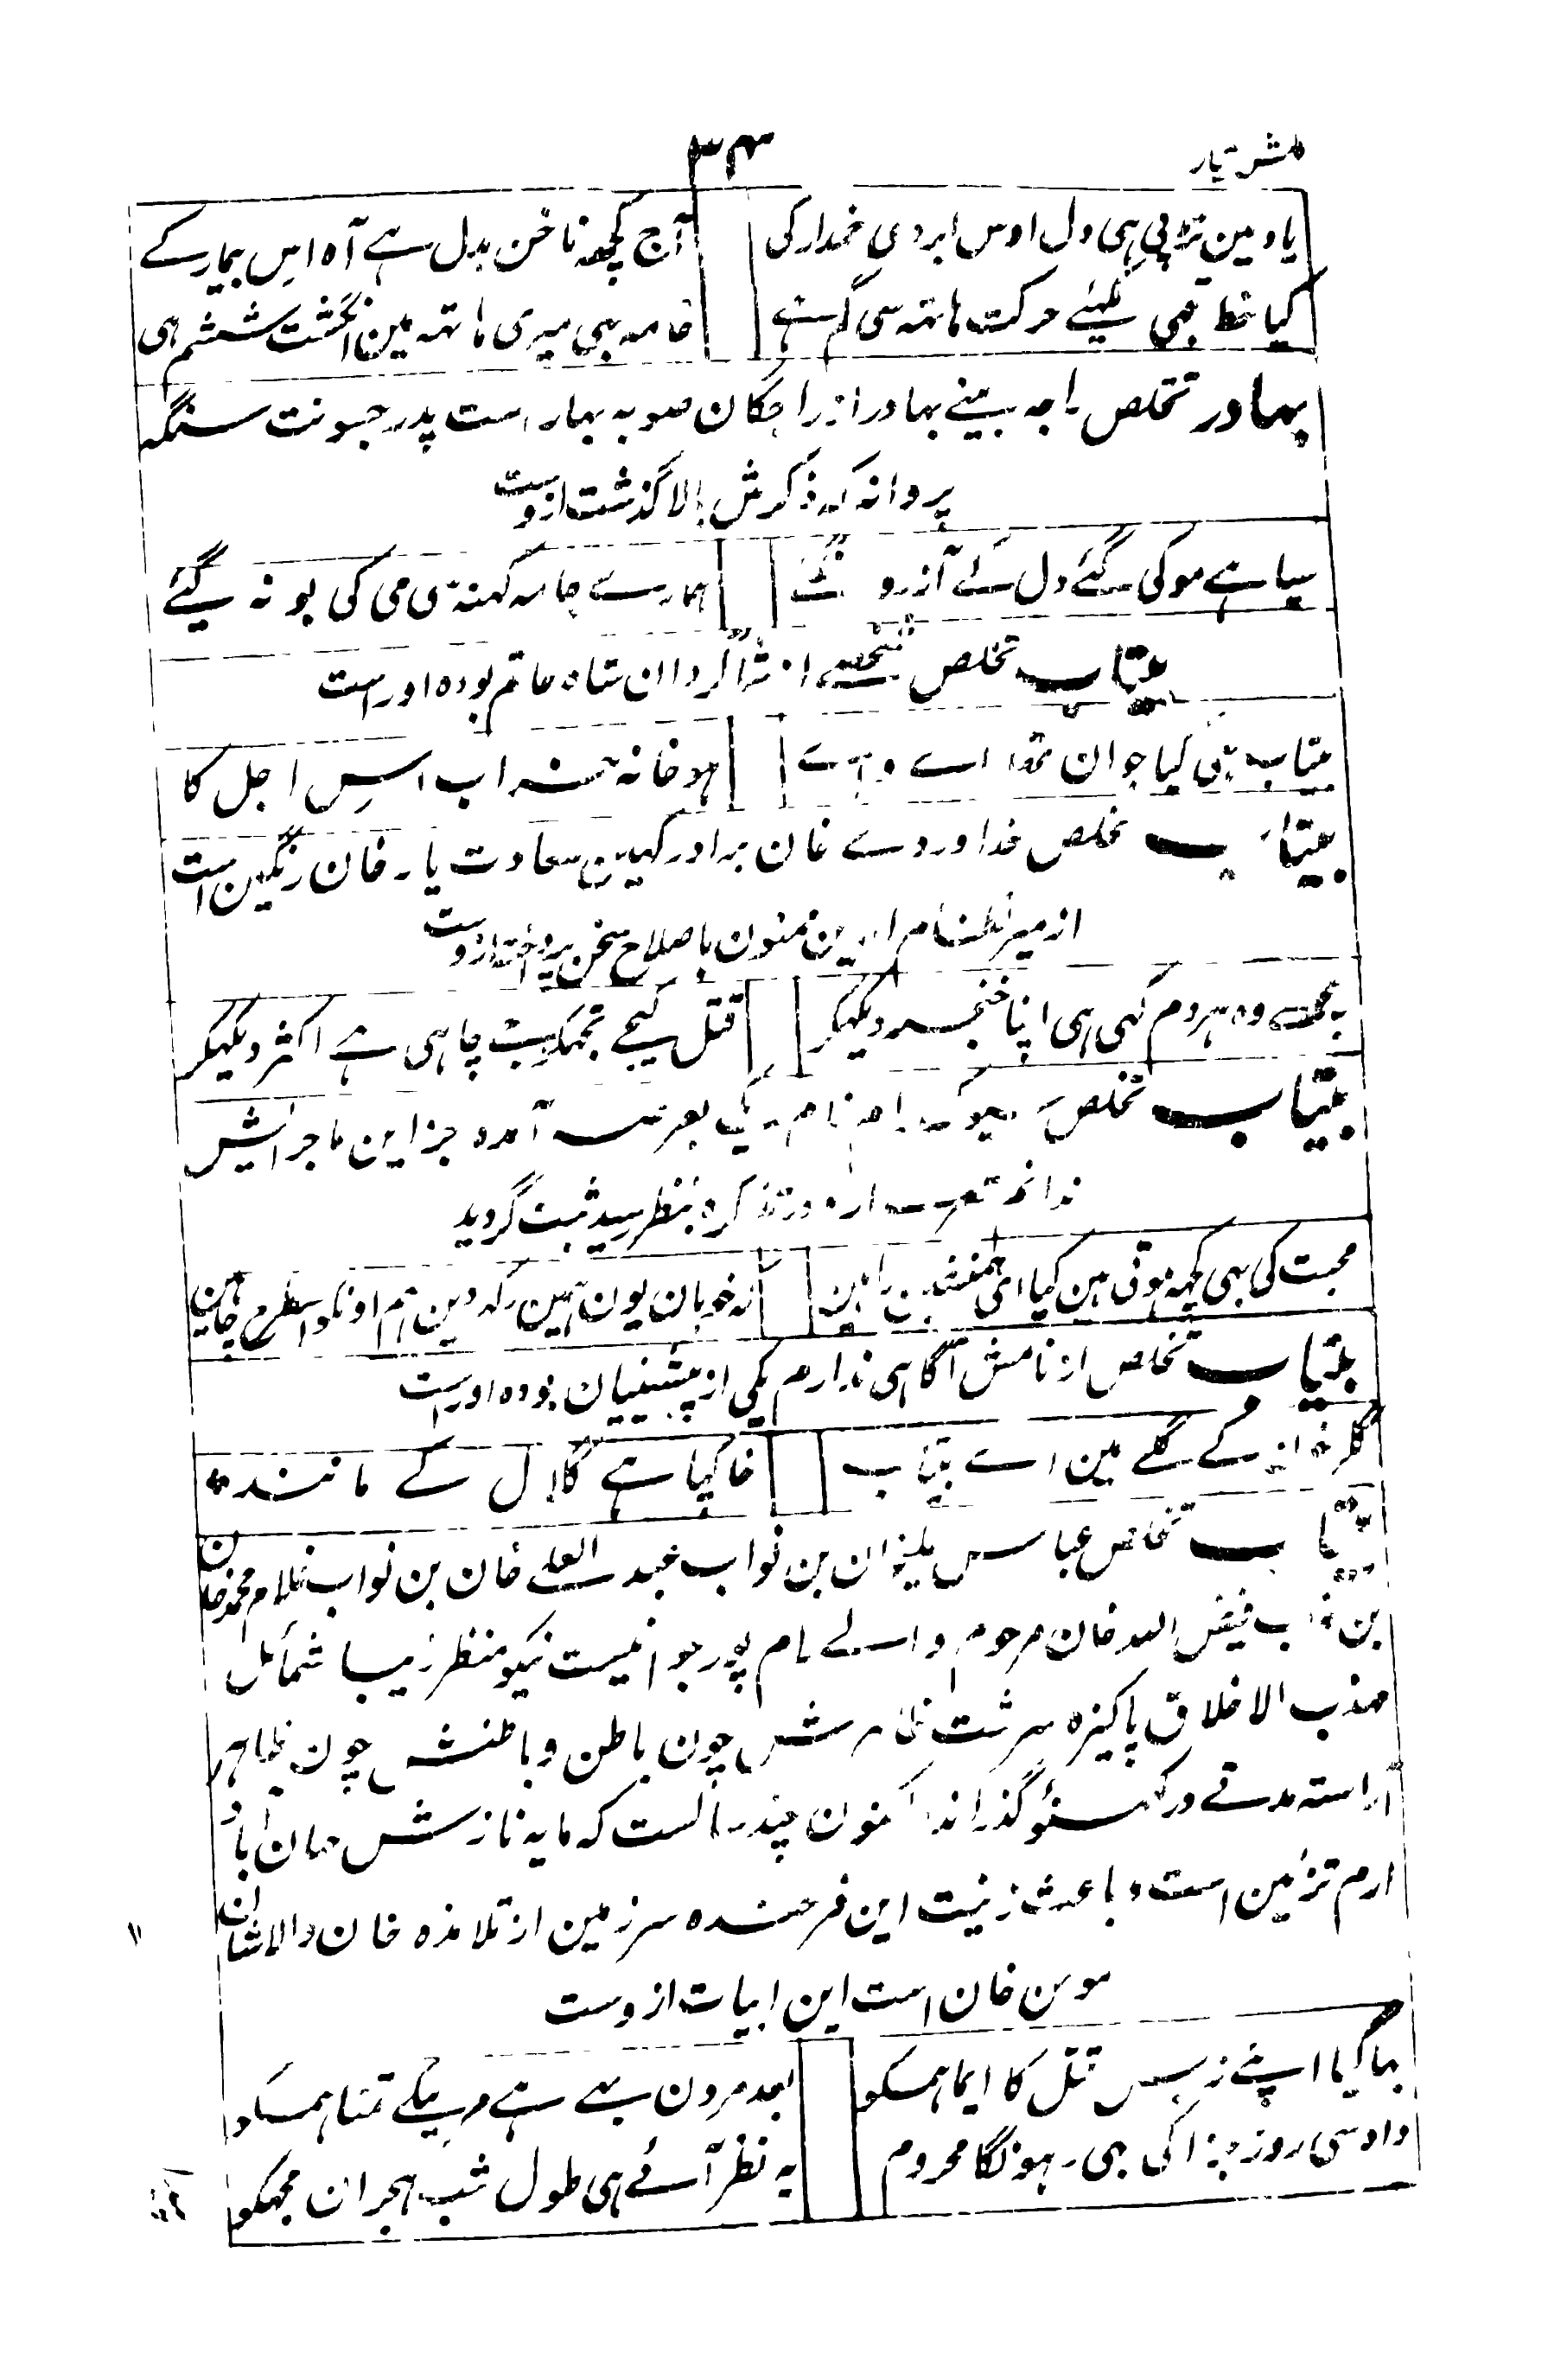 ۳۴
یاد مین تڑپی ہی دل اوس ابروی خمدار کی
آج کچھ ناخن بدل ہے آہ اس بیمار کے
کیا خط لکہئے حرکت ہاتہہ سی گم ہے
خامہ بہی میری ہاتہہ مین انگشت ششم ہی
بہادر تخلص راجہ بینے بہادر از راجگان صوبہ بہار است پدر جسونت سنگہ
پروانہ کہ ذکرش بالا گذشت ازوست
سیاہے مو کی گئے دل کے آرزو نہ گئے
ہمارے جامہ کہنہ سی می کی بو نہ گئے
بیتاب تخلص شخصے از شاگردان شاہ حاتم بودہ اوراست
بیتاب بہی کیا جوان تہا اے وا ے
ہو خانہ خراب اس اجل کا
بیتاب تخلص خداوردے خان برادر کہین سعادت یار خان رنگین است
از میر نظام الدین ممنون باصلاح سخن پرداخت ازوست
مجہے وہ ہردم کہی ہی اپنا خنجر دیکہکر
قتل کیجے تجہکو جی چاہی ہے اکثر دیکہکر
بیتاب تخلص سیوک رام نام یکے بعرصہ آمدہ جز این ماجرایش
ندانم شعرے ازو در تذکرہ بنظر رسید ثبت گردید
محبت کی بہی کچہہ ہوتی ہین کیا ای ہمنشین راہین
کہ خوبان یون ہمین رکہ دین ہم اونکو اسطرح چاہین
بیتاب تخلص از نامش آگاہی ندارم یکی از پیشینیان بودہ اوراست
گلرخان کے گلے مین اے بیتاب
خاکپا ہے گلال کے مانند
بیتاب تخلص عباس علیخان بن نواب عبد العلے خان بن نواب غلام محمد خان
بن نواب فیض اللہ خان مرحوم والے رام پور جوانیست نیکو منظر زیبا شمائل
مہذب الاخلاق پاکیزہ سرشت ظاہرش چون باطن و باطنش چون ظاہر
آراستہ مدتے در لکہنؤ گذراند اکنون چند سالست کہ مایہ نازش جہان آباد
ارم تزئین است و باعث زینت این فرخندہ سرزمین از تلامذہ خان والاشان
مومن خان است این ابیات ازوست
بہا گیا اپنے زبس قتل کا ایما ہمکو
بعد مردن بہے ہے مرنیکے تمنا ہمکو
داد سی روز جزا کی بہی رہونگا محروم
یہ نظر آئے ہی طول شب ہجران مجہکو